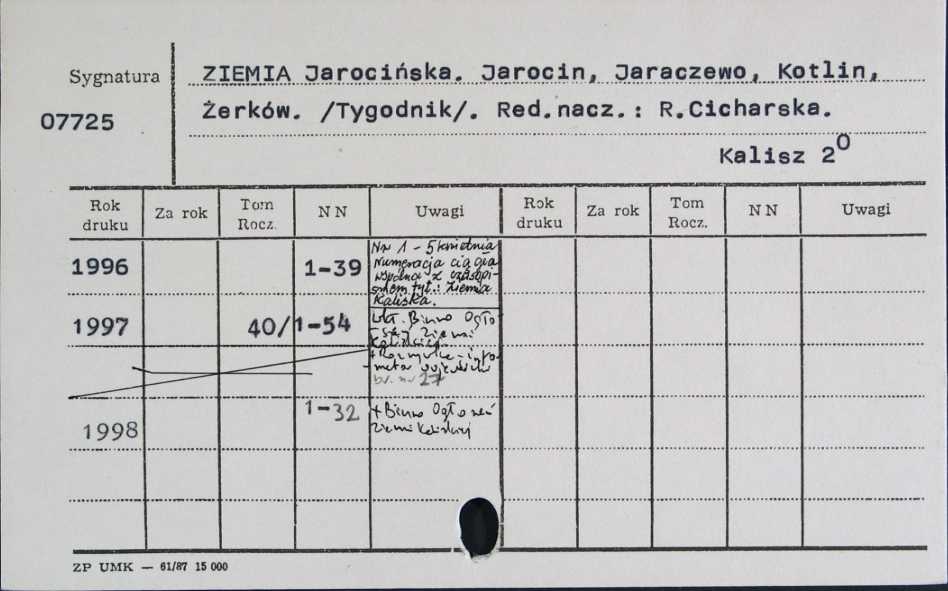 Sygnatura
07725
ZIEMIA Jarocińska. Jarocin, Jaraczewo, Kotlin,
Żerków. /Tygodnik/. Red.nacz.: R.Cicharska.
Kalisz 2⁰
Rok druku Za rok Tom Rocz. NN Uwagi Rok druku Za rok Tom Rocz. NN Uwagi
1996 1-39
Nr 1 - 5 kwietnia
Numeracja ciągła
wspólna z czasopi-
smem tyt.: Ziemia
Kaliska.
1997 40/1-54
Biuro Ogło-
Ziemi
br. nr 27
1998 1-32
+ Biuro Ogłoszeń
Ziemi Kaliskiej
ZP UMK — 61/87 15 000